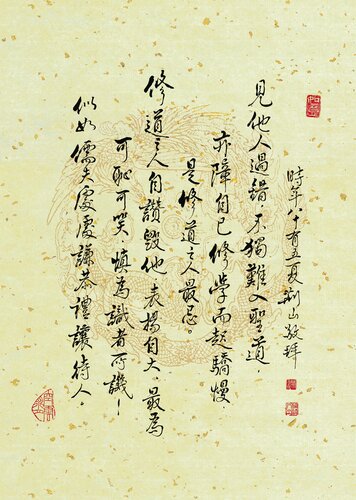 如意
時年八十有五夏山敬拜
見他人過錯．不獨難入聖道．
亦障自己修學而起驕慢
是修道之人最忌。
修道之人自讚毀他表揚自大．最為
可恥可笑．慎為識者所譏！
似如儒夫處處謙恭禮讓待人。